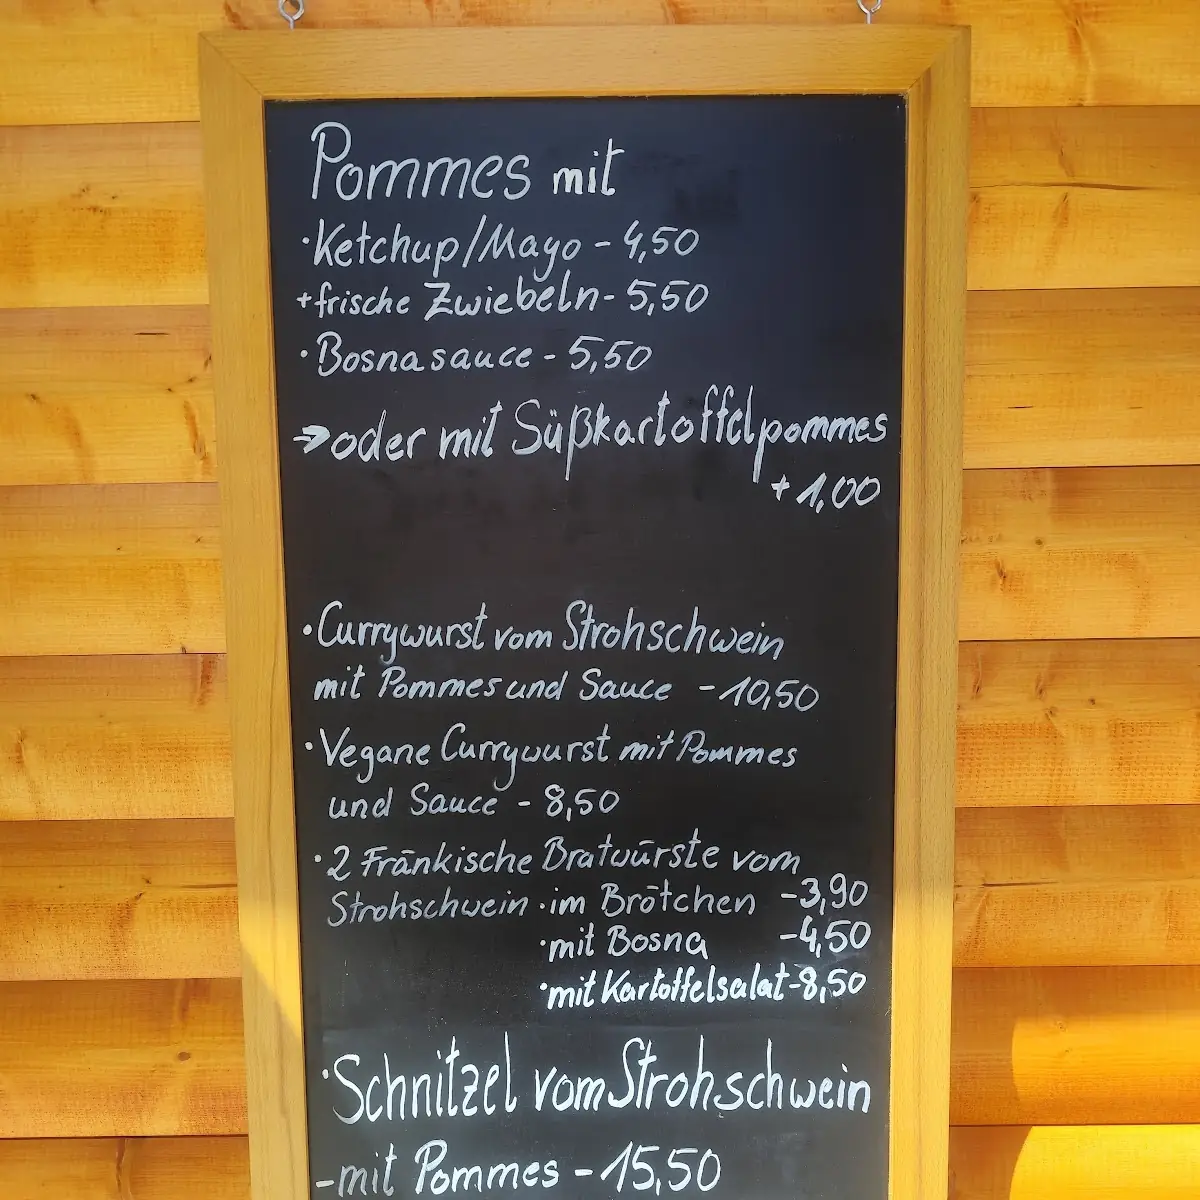 Pommes mit
·Ketchup/Mayo - 4,50
+frische Zwiebeln - 5,50
·Bosnasauce - 5,50
→oder mit Süßkartoffelpommes
+ 1,00
·Currywurst vom Strohschwein
mit Pommes und Sauce - 10,50
·Vegane Currywurst mit Pommes
und Sauce - 8,50
·2 Fränkische Bratwürste vom
Strohschwein ·im Brötchen - 3,90
·mit Bosna - 4,50
·mit Kartoffelsalat - 8,50
·Schnitzel vom Strohschwein
-mit Pommes - 15,50